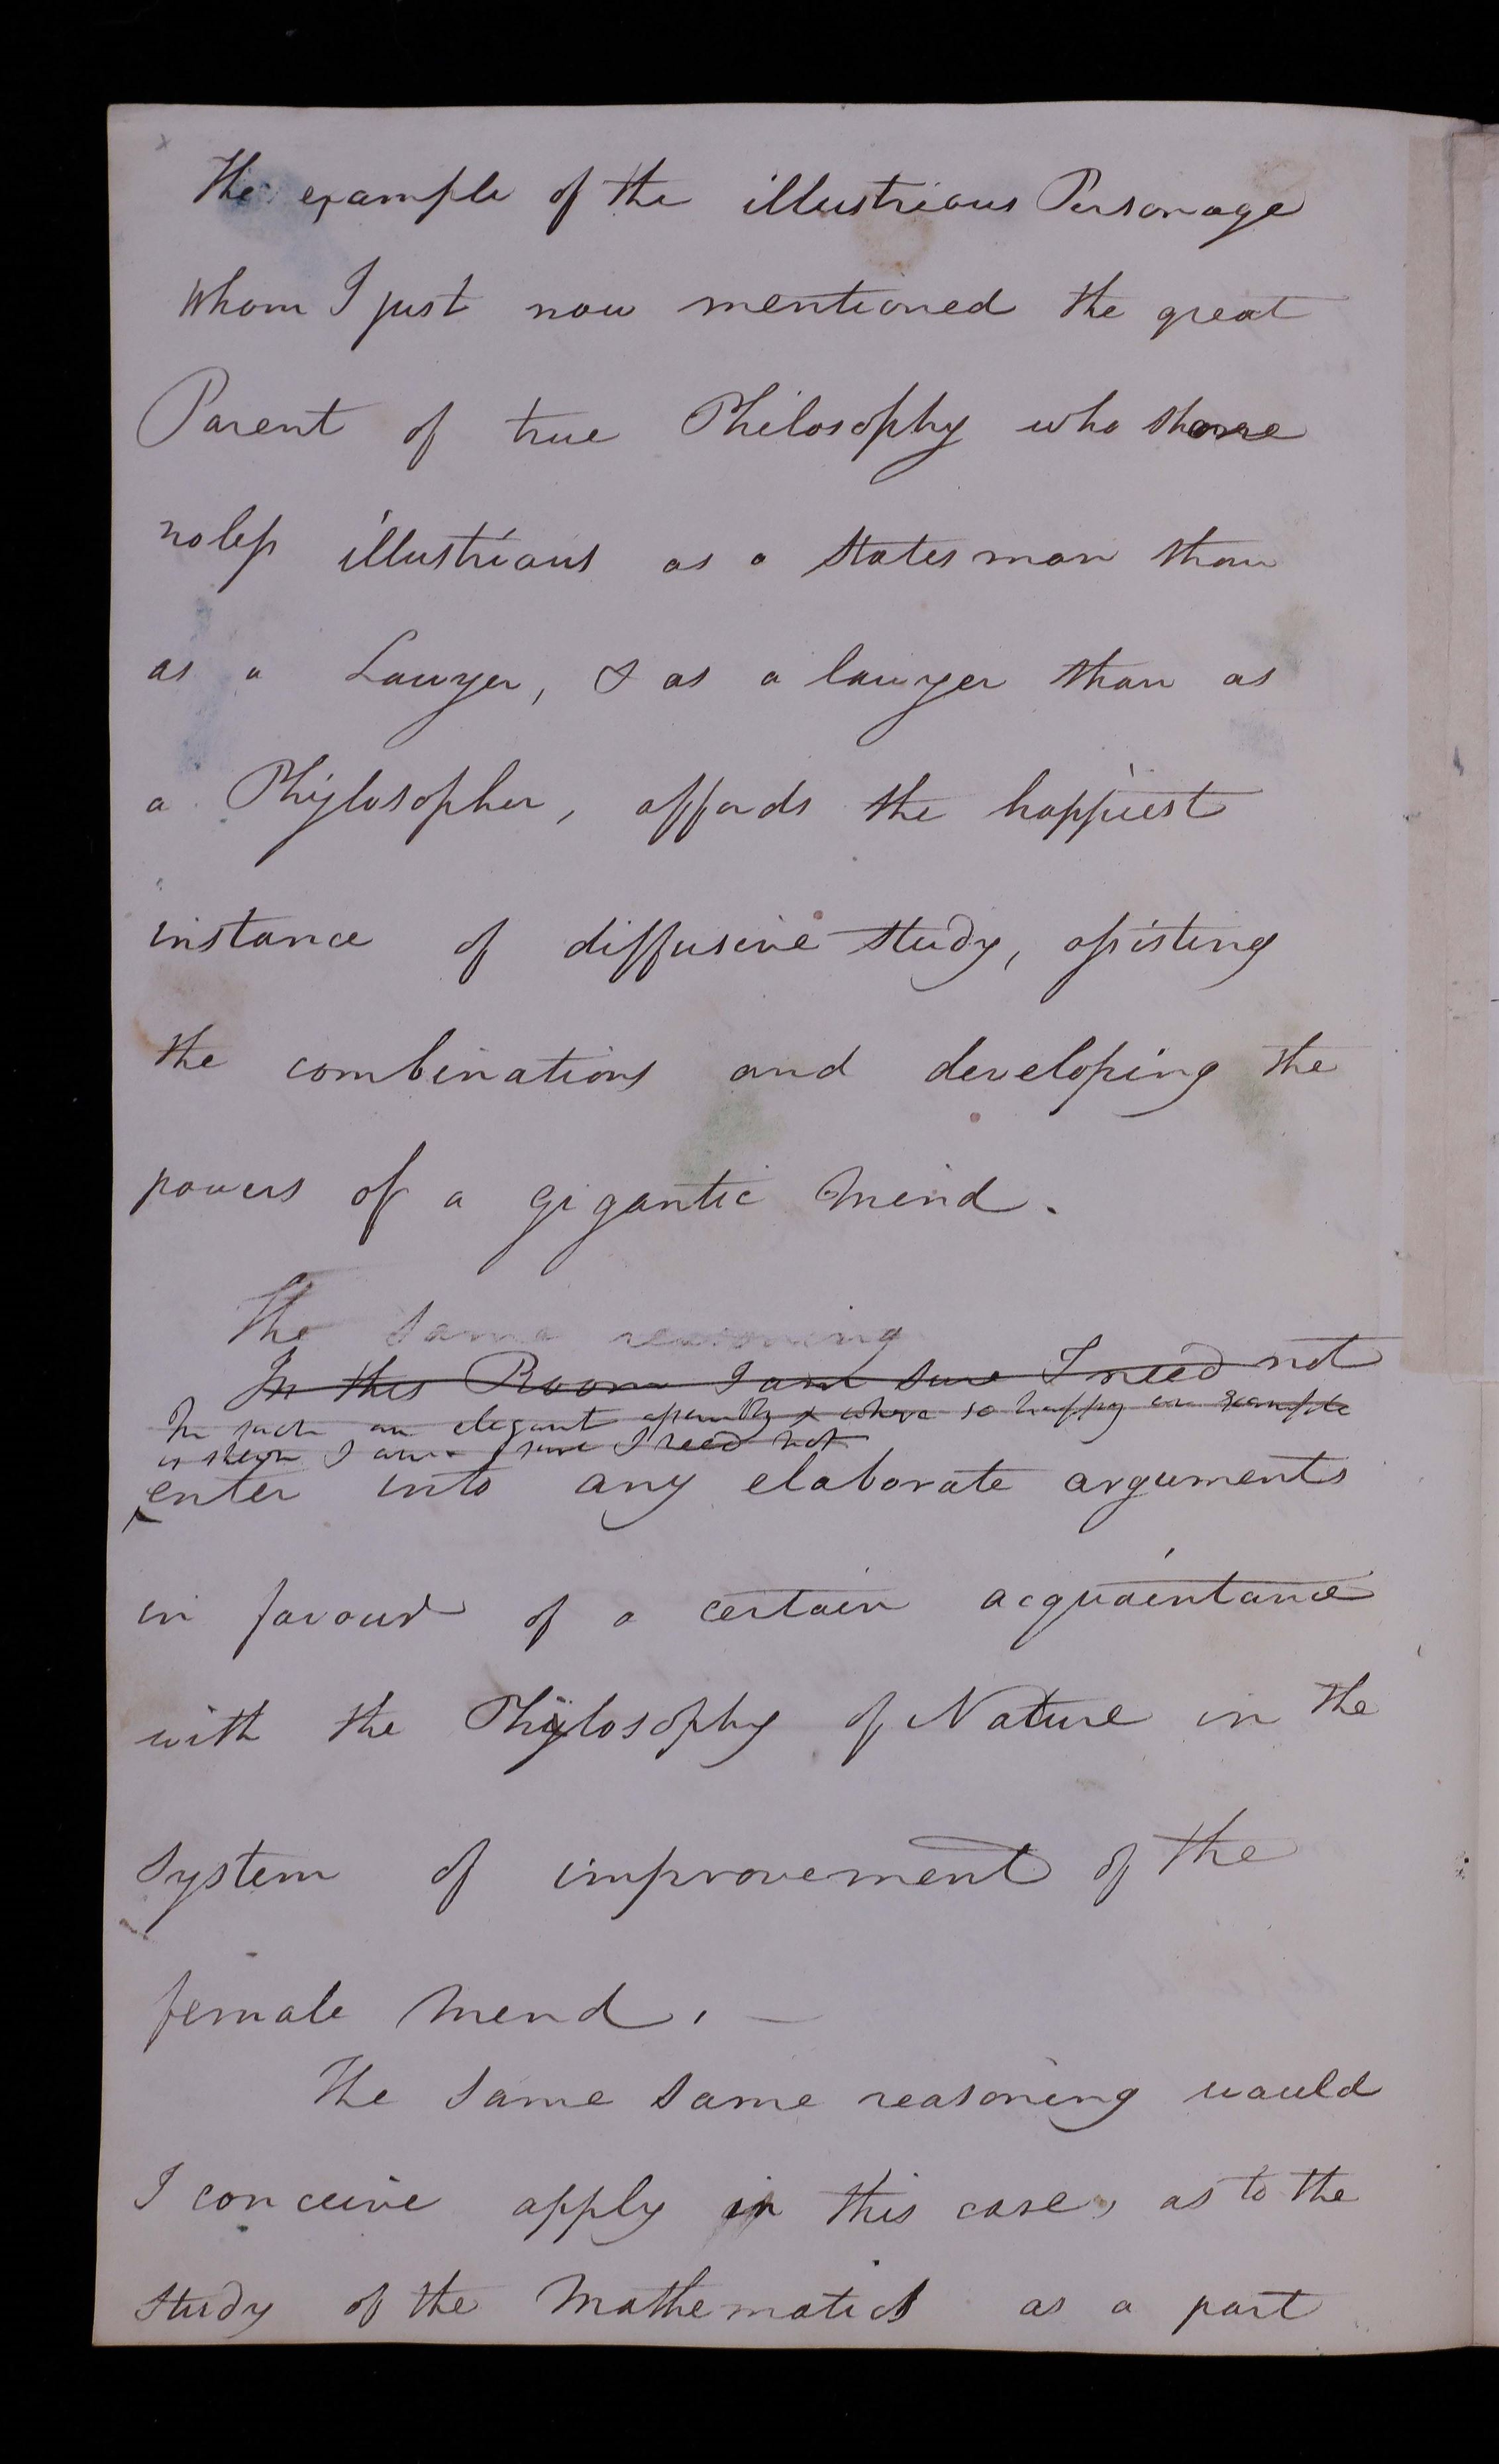 The example of the illustrious Personage
whom I just now mentioned the great
Parent of true Philosophy who shone
no less illustrious as a Statesman than
as a Lawyer, & as a lawyer than as
a Phylosopher, affords the happiest
instance of diffusive study, assisting
the combinations and developing the
powers of a gigantic Mind.
The same reasoning
In this Room I am sure I need not
In such an elegant assembly & where so happy an example
is shewn I am sure I need not
enter into any elaborate arguments
in favour of a certain acquaintance
with the Phylosophy of Nature in the
System of improvement of the
female Mind. —
The same same reasoning would
I conceive apply in this case, as to the
study of the Mathematics as a part